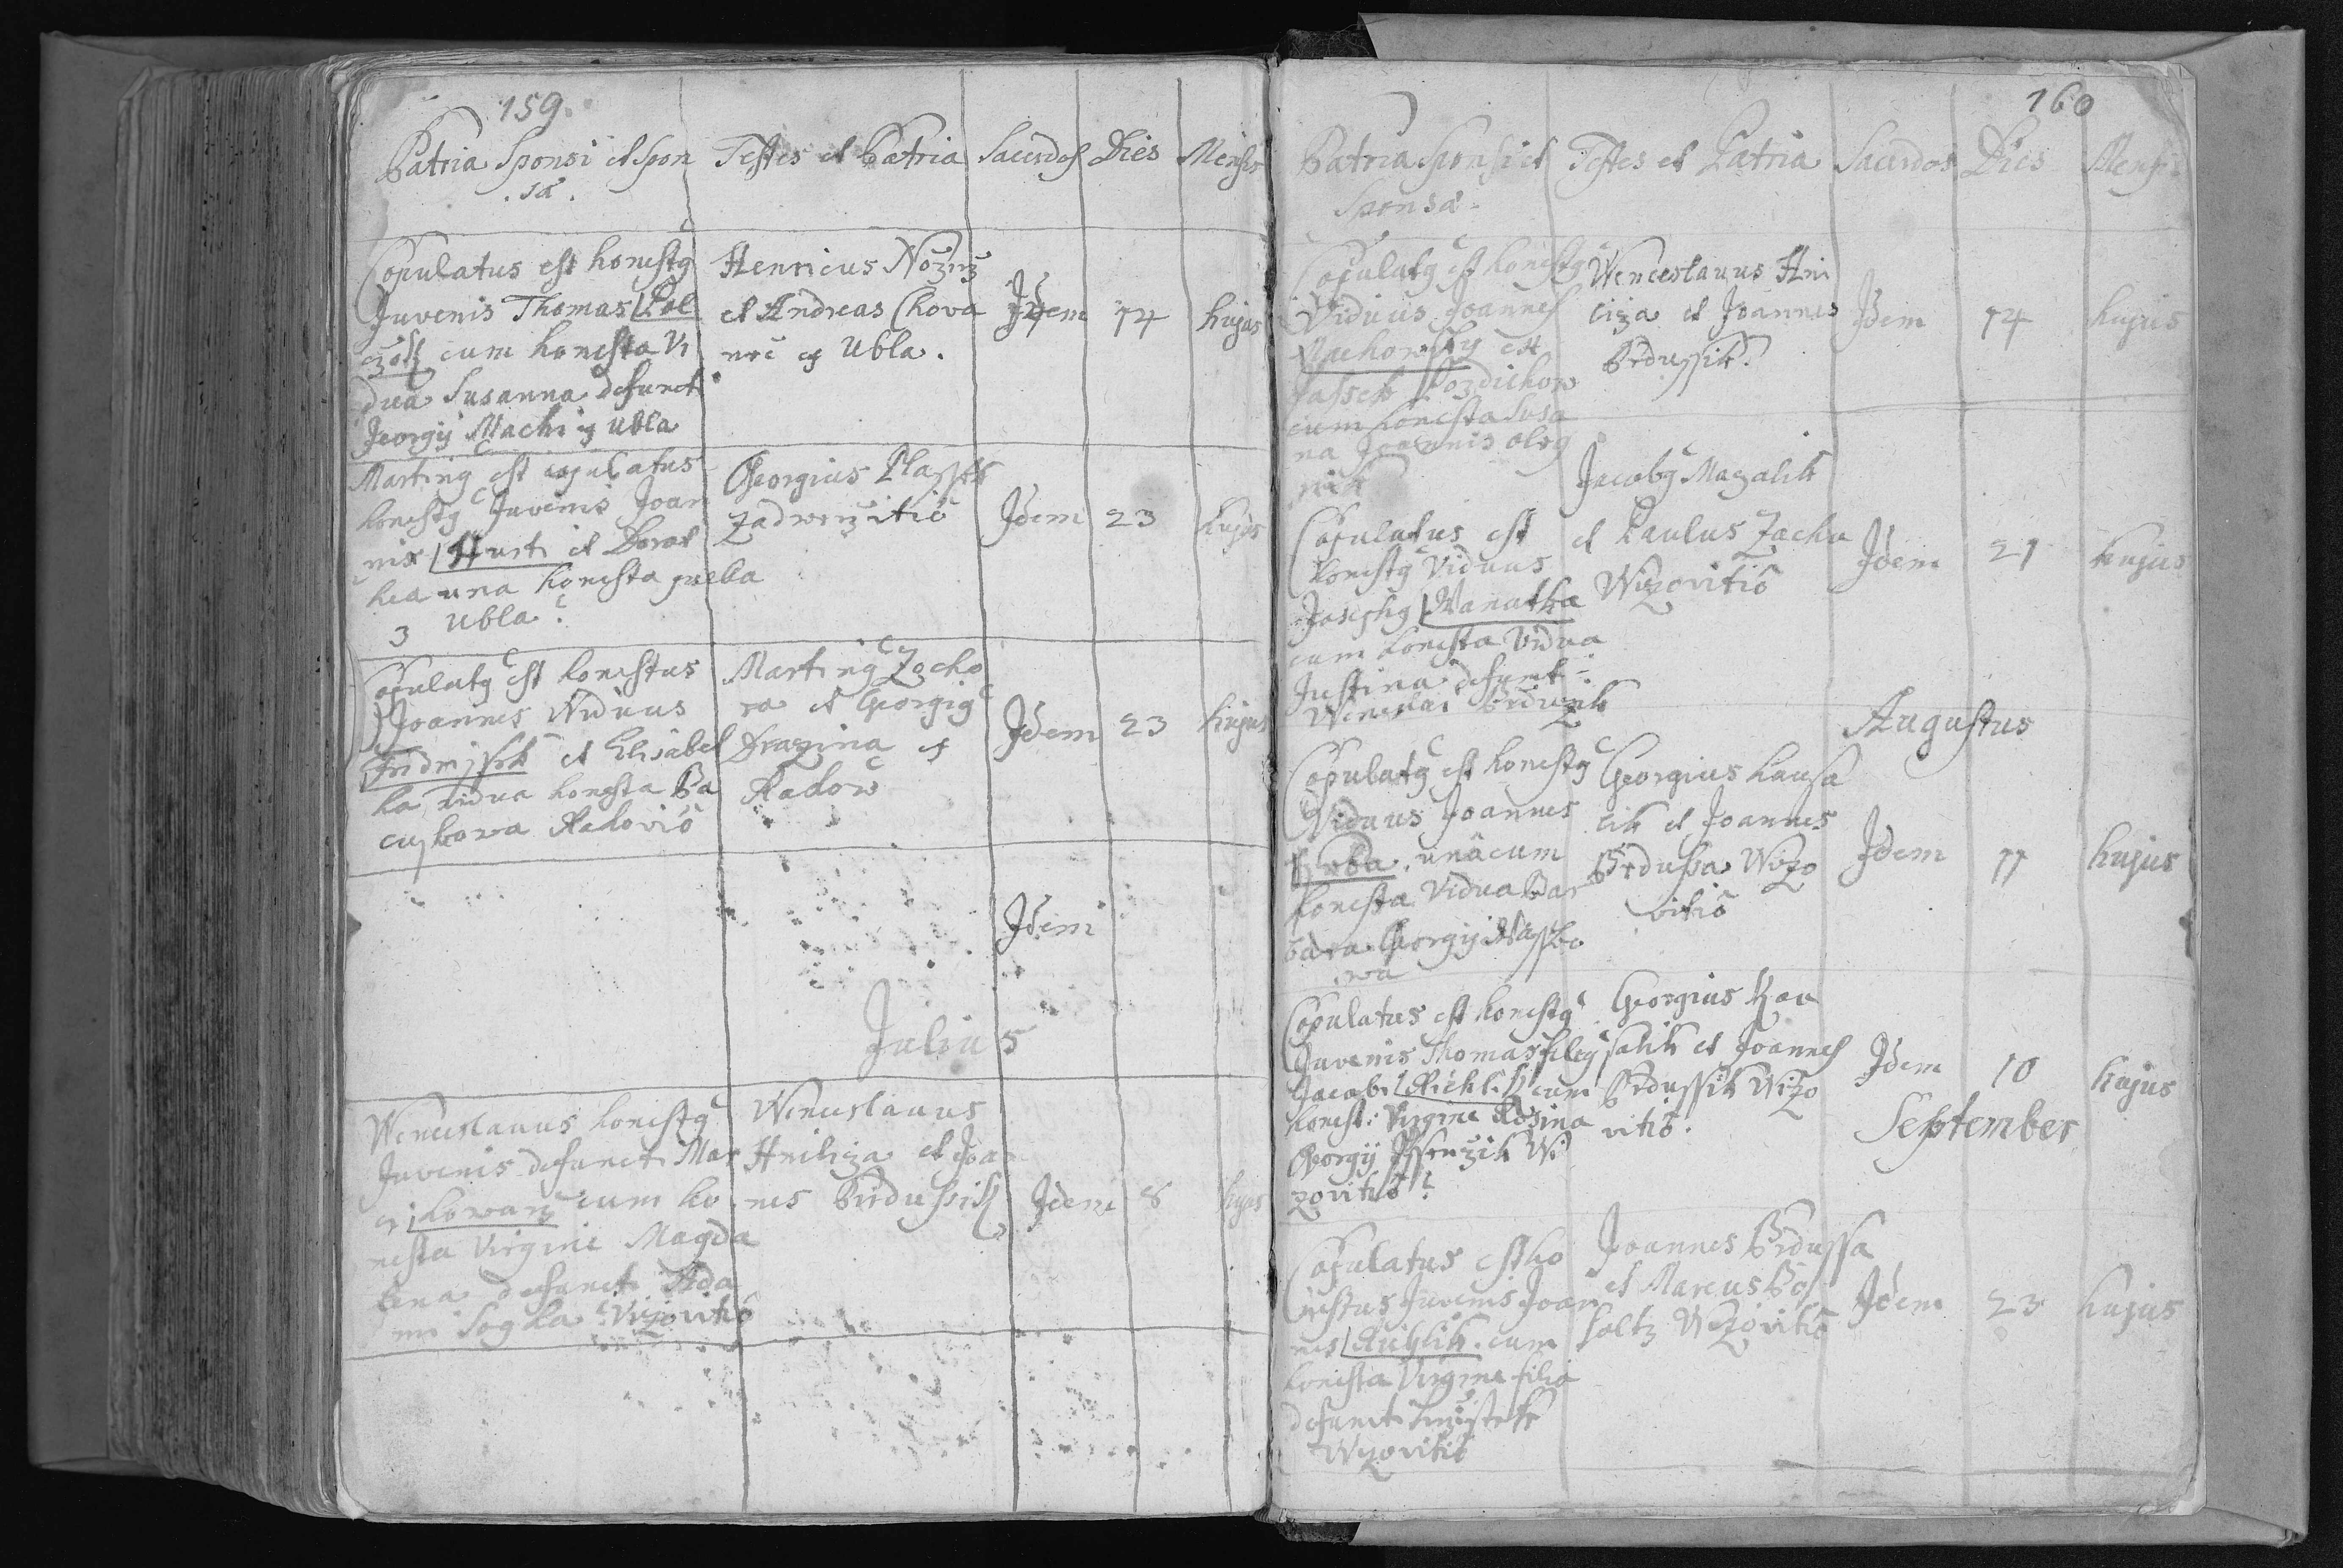 159.
Patria Sponsi et Spon
sæ.
Testes et Patria
Sacerdos
Dies
Mensis
Copulatus est honestq
Juvenis Thomas Pol
cum honesta Vi
dua Susanna defuncti
Georgij Machi ex Ubla
Henricus
et Andreas Chova
nec ex Ubla.
Idem
14
hujus
Martinq est copulatus
honestq Juvenis Joan
nis Hurti et Dorot
hea una honesta
3 Ubla
Georgius Plassek
Zadwerzitić
Idem
23
hujus
Copulatq est honestus
Joannes Viduus
et Elisabet
ha vidua honesta Ba
Rakovic
Martinq Zocho
ra et Georgiq
Drazina et
Rakow
Idem
23
hujus
Idem
Julius
Wenceslauus honestq
Juvenis defuncti Mar
ci Kowarz cum ho
nesta Virgine Magda
lena defuncti Ada
mi Vizovitić
Wenceslauus
Hniliza et Joa
nes Brdussik
Idem
8
hujus
160
Patria Sponsi et
Sponsæ.
Testes et Patria
Sacerdos
Dies
Mensis
Copulatq est honestq
Viduus Joannes
Machowsky ex
Pozdichow
cum honesta Susa
na Joannis
Wenceslauus Hni
liza et Joannes
Brdussik.
Idem
14
hujus
Copulatus est
honestq Viduus
Josephq Wanatka
cum honesta Vidua
Justina defunct:
Wenceslai
Jacobq Mazalik
et Paulus Zacha
Wizovitić
Idem
21
hujus
Augustus
Copulatq est honestq
Viduus Joannes
unâcum
honesta Vidua Bar
bara Georgij
wa
Georgius Kausa
lik et Joannes
Brdussa Wizo
vitić
Idem
11
hujus
Copulatus est honestq
Juvenis Thomas filiq
Jacobi Richlik cum
honest: Virgine Rosina
Georgij Wi
zovitić
Georgius Kau
salik et Joannes
Brdussik Wizo
vitić.
Idem
10
hujus
September
Copulatus est ho
nestus Juvenis Joan
nes Richlik cum
honesta Virgine filia
defuncti
Wizovitić
Joannes Brdussa
et Marcus Bo
holtz Wizovitić
Idem
23
hujus